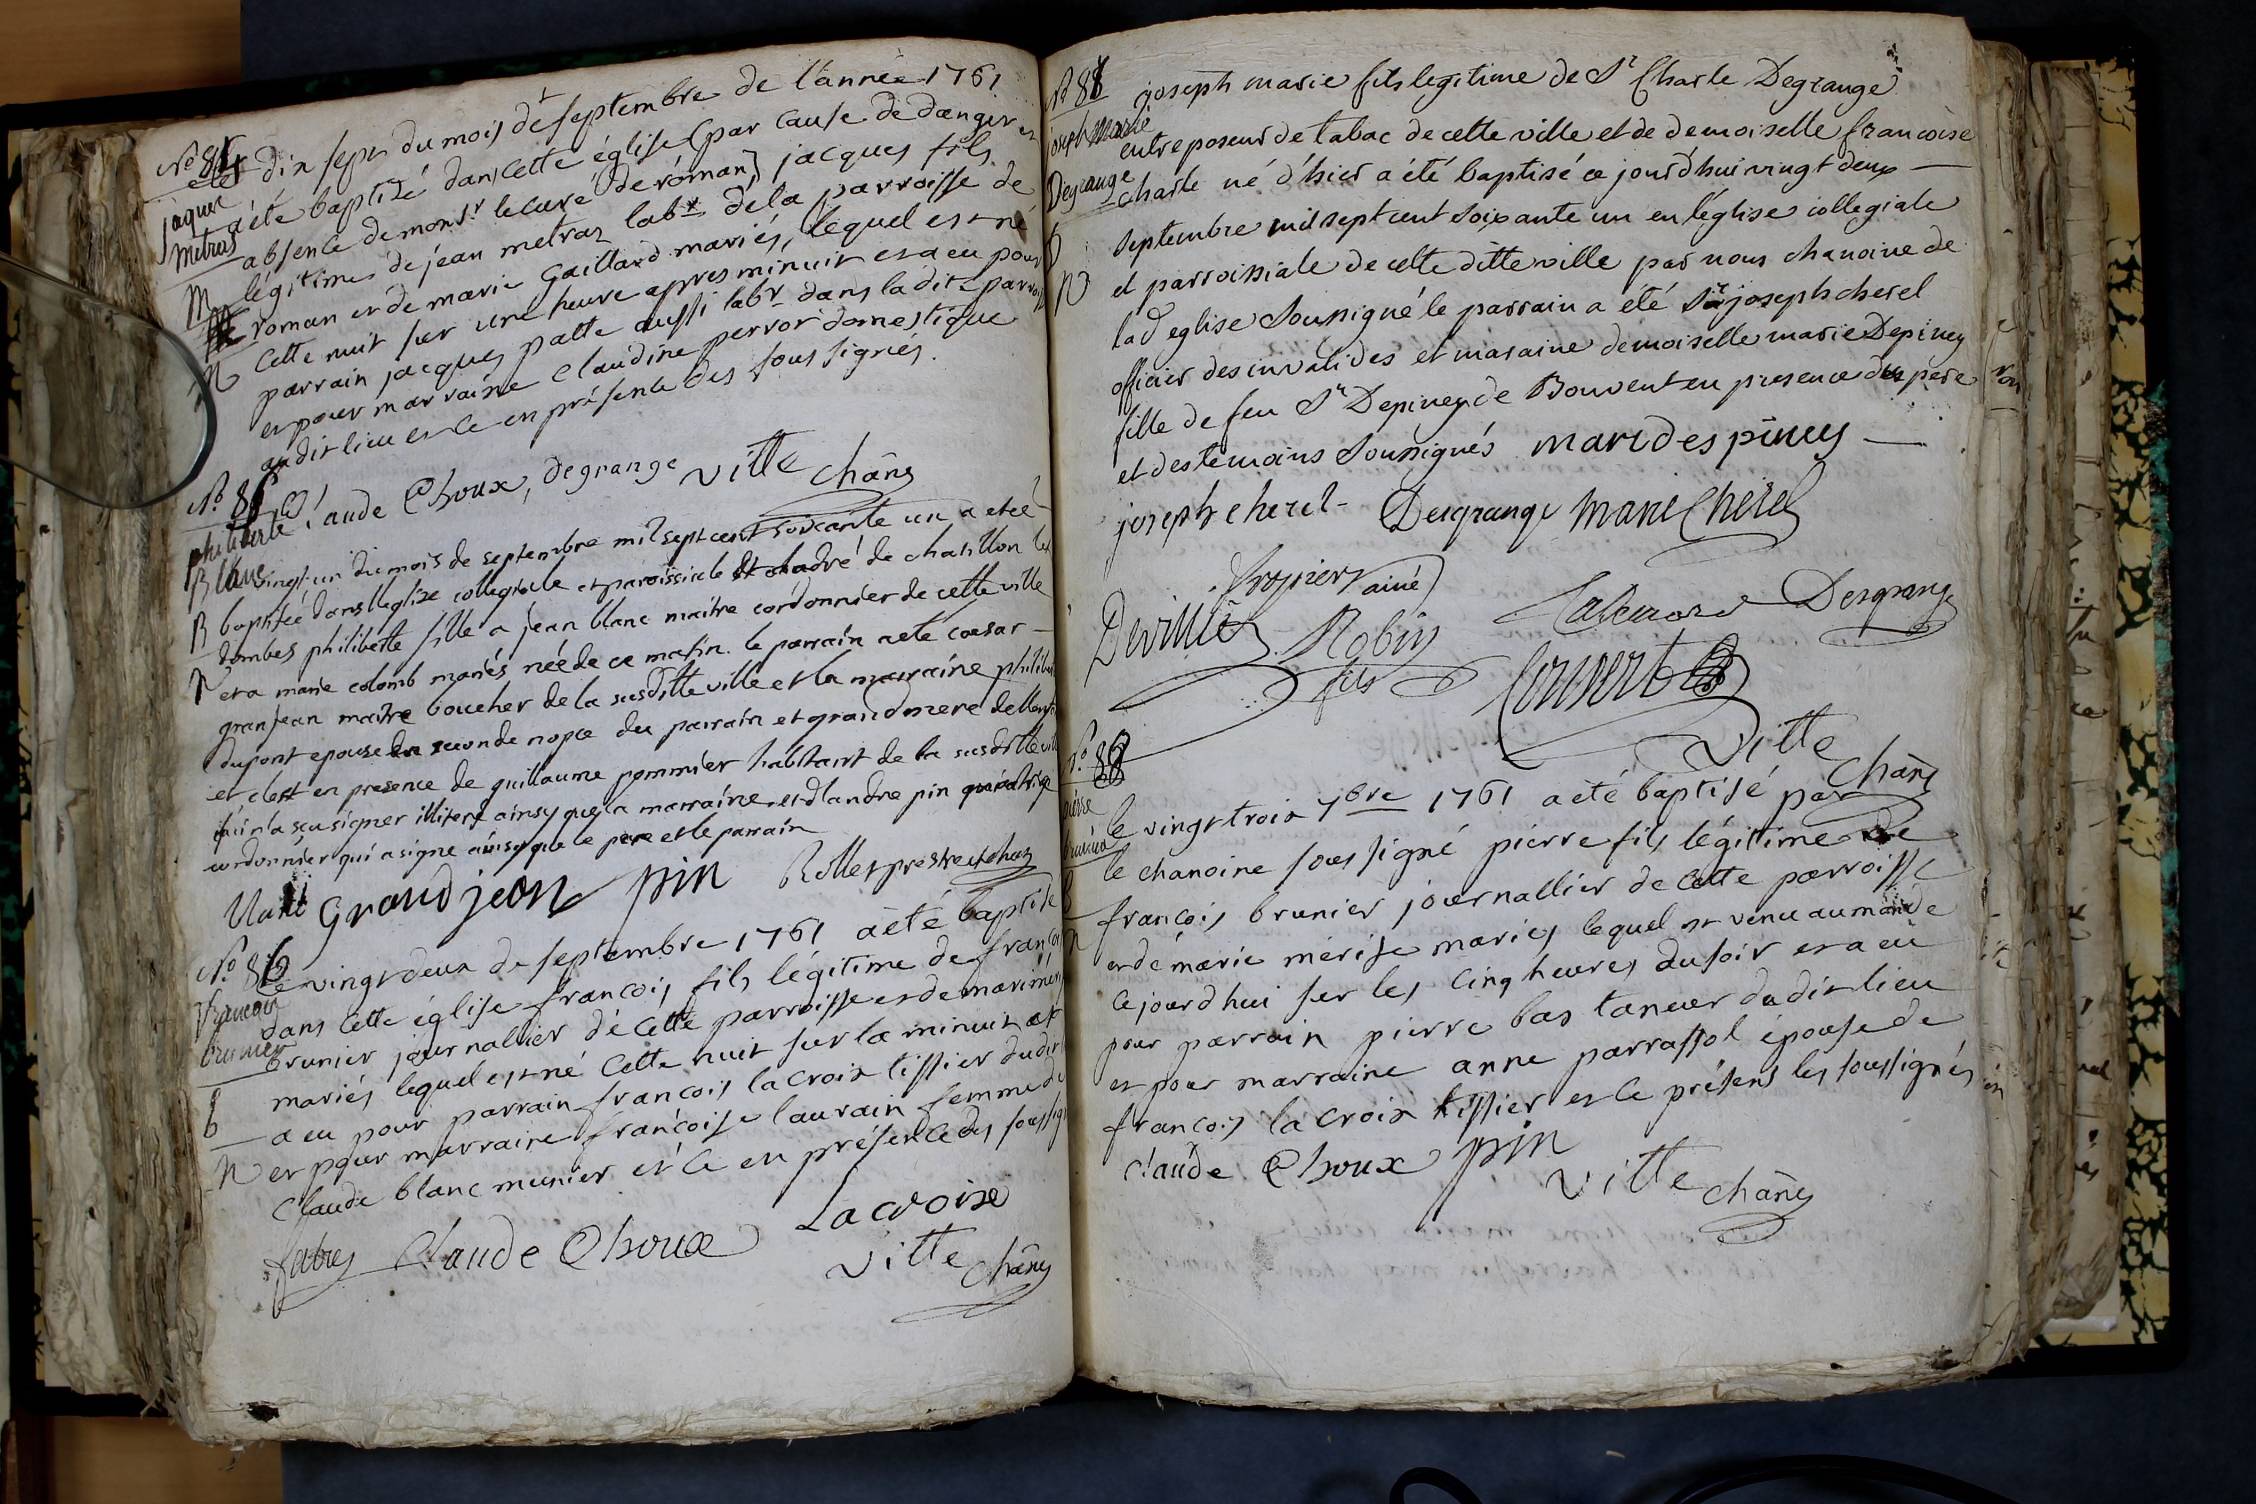 No 84
jaques
metras
M
N
dix sept du mois de septembre de l'année 1761
a été baptisé dans cette église (par cause de danger et
absence de monsr le curé de roman) jacques fils
légitime de jean metraz labr de la parroisse de
roman et de marie Gaillard mariés, lequel est né
cette nuit sur une heure apres minuit et a eu pour
parrain jacques patte aussi labr dans la dite parroisse
et pour marraine claudine perror domestique
au dit lieu et ce en présence des sous signés.
Claude Choux, degrange ville chãne
No 85
philiberte
Blanc
B
N
vingt un du mois de septembre mil sept cent soixante un a eté
baptisée dans leglize collegialle et paroissialle St andré de chatillon les
dombes philiberte fille a jean blanc maitre cordonnier de cette ville
et a marie colomb mariés née de ce matin. le parrain a eté caesar
granjean maitre boucher de la susditte ville et la marraine philiberte
dupont epouse en seconde nopce du parrain et grand mere de
et c'est en presence de guillaume pommier habitant de la susditte ville
qui n'a sçu signer illiteré ainsy que la marraine et d'andre pin
cordonnier qui a signe ainsy que le pere et le parrain
grand jean pin Rollet prestre et chan
No 86
francois
brunier
b
N
Le vingt deux de septembre 1761 a été baptisé
dans cette église francois fils légitime de francois
brunier journallier de cette parroisse et de marie
mariés lequel est né cette nuit sur la minuit et
a eu pour parrain francois la croix tissier du dit
et pour marraine françoise laurain femme de
Claude blanc meunier et ce en présence des soussignés
fabres Claude Choux Lacroix
ville chãne
No 88
joseph Marie
Degrange
N
joseph marie fils legitime de Sr Charle Degrange
entreposeur de tabac de cette ville et de demoiselle francoise
charle né d'hier a été baptisé ce jourd'hui vingt deux
septembre mil sept cent soixante un en l'église collegiale
et parroissiale de cette ditte ville par nous chanoine de
lad eglise soussigné le parrain a été Sr joseph cherel
officier des invalides et maraine demoiselle marie Depiney
fille de feu Sr Depiney de Bouvent en presence du père
et des temoins soussignés marie des piney
joseph cherel Desgrange marie Cherel
frojier ainé
Deville Robin fils Desgrange
Convert
ville chãne
No 88
pierre
brunier
b
n
le vingt trois 7bre 1761 a été baptisé par
le chanoine sous signé pierre fils légitime de
francois brunier journallier de cette parroisse
et de marie mérise mariés lequel est venu au monde
ce jourd'hui sur les cinq heures du soir et a eu
pour parrain pierre bas taneur du dit lieu
et pour marraine anne parrassol épouse de
francois la croix tissier et ce présens les soussignés
Claude Choux pin
ville chãne